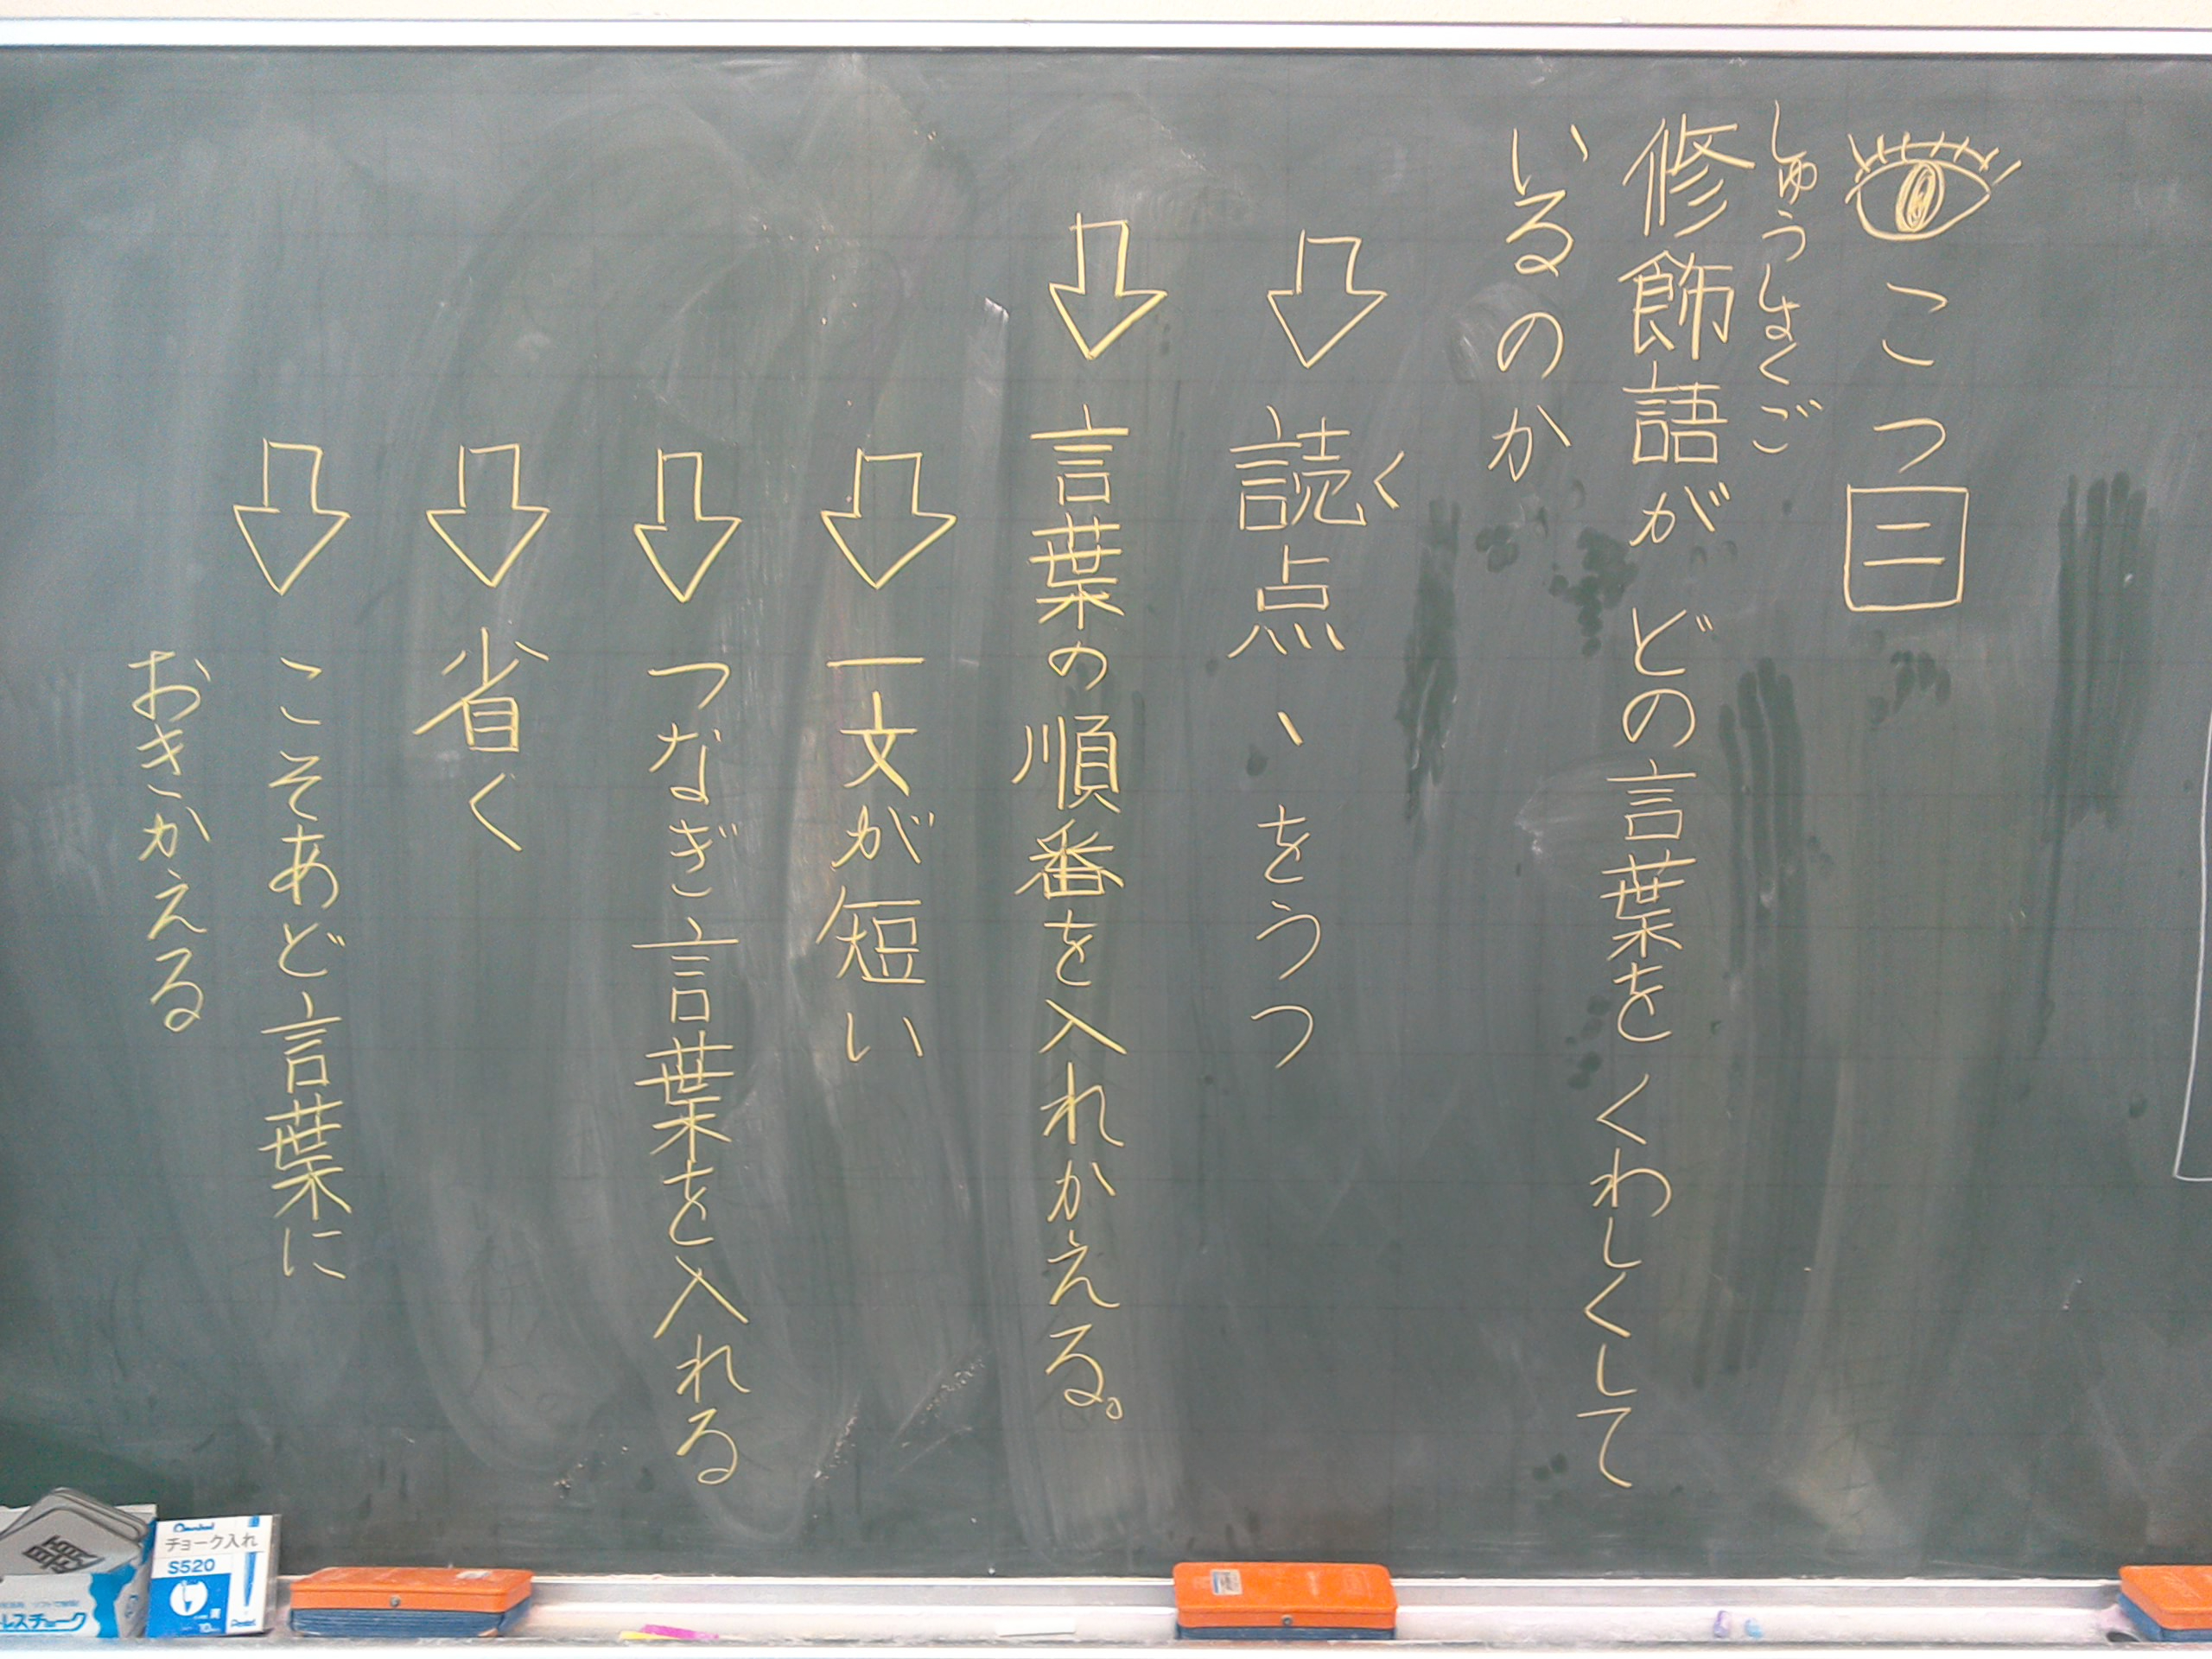 こつ 二
しゅうしょくご
修飾語が どの言葉を くわしくして
いるのか
読点、をうつ
く
言葉の順番を入れかえる。
一文が短い
つなぎ言葉を入れる
省く
こそあど言葉に
おきかえる
チョーク入れ
S520
Pentel
レスチョーク